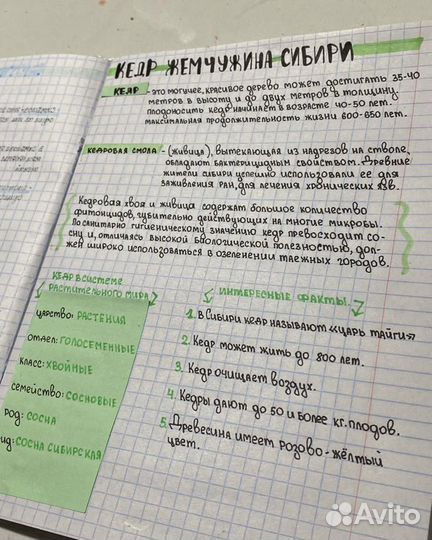 КЕДР ЖЕМЧУЖИНА СИБИРИ
КЕДР - это могучее, красивое дерево может достигать 35-40
метров в высоту и до двух метров в толщину.
плодоносить кедр начинает в возрасте 40-50 лет.
максимальная продолжительность жизни 600-650 лет.
КЕДРОВАЯ СМОЛА - (живица), вытекающая из надрезов на стволе,
обладают бактерицидным свойством. Древние
жители сибири успешно использовали ее для
заживления ран, для лечения хронических язв.
Кедровая хвоя и живица содержат большое количество
фитонцидов, губительно действующих на многие микробы.
По санитарно гигиеническому значению кедр превосходит со-
сну и, отличаясь высокой биологической полезностью, дол-
жен широко использоваться в озеленении таежных городов.
КЕДР В СИСТЕМЕ
РАСТИТЕЛЬНОГО МИРА
царство: РАСТЕНИЯ
отдел: ГОЛОСЕМЕННЫЕ
класс: ХВОЙНЫЕ
семейство: СОСНОВЫЕ
род: СОСНА
ид: СОСНА СИБИРСКАЯ
ИНТЕРЕСНЫЕ ФАКТЫ.
1. В Сибири кедр называют «царь тайги»
2. Кедр может жить до 800 лет.
3. Кедр очищает воздух.
4. Кедры дают до 50 и более кг. плодов.
5. Древесина имеет розово-жёлтый
цвет.
Avito